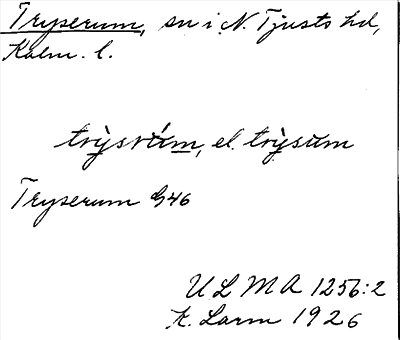 Tryserum, sn i N. Tjusts hd,
Kalm. l.
trỳsrúm, el. trỳsum
Tryserum G46
ULMA 1256:2
K. Larm 1926